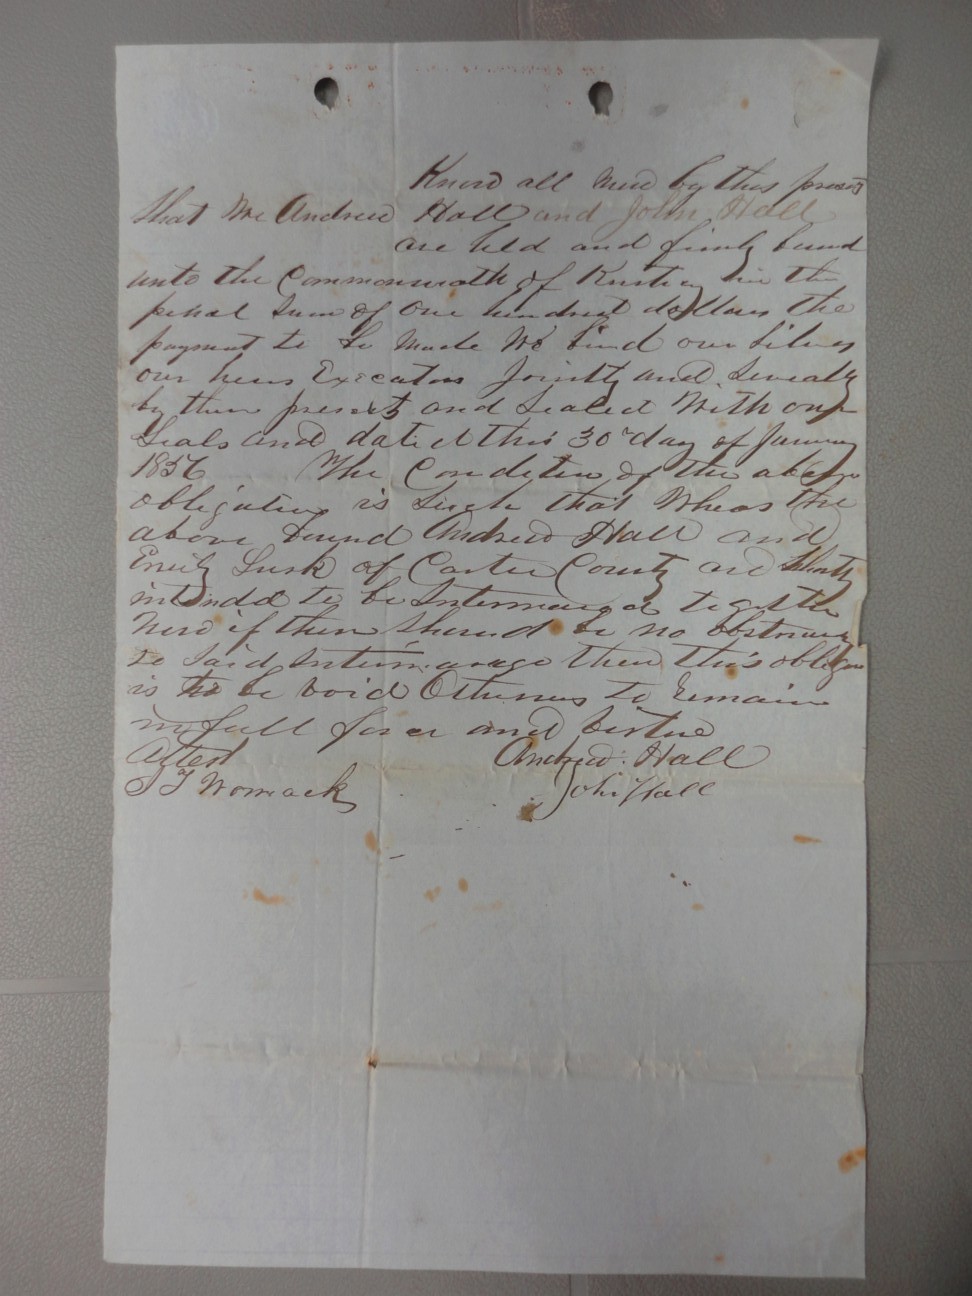 Know all men by thes presents
that We Andrew Hall and John Hall
are held and firmly bound
unto the Commonwealth of Kentucky in the
penal Sum of One hundred dollars the
payment to be Made We bind our Selves
our heirs Executors Jointly and Severally
by these presents and Sealed With our
Seals and dated this 30th day of January
1856 The Condition of the above
obligation is Such that Wheras the
above bound Andrew Hall and
Emily Lusk of Carter County are Shortly
intended to be Intermaried together
Now if there Should be no obstruction
to Said Intermarage then this obligation
is to be void Otherwis to remain
in full force and virtue
Attest Andrew Hall
S T Womack John Hall